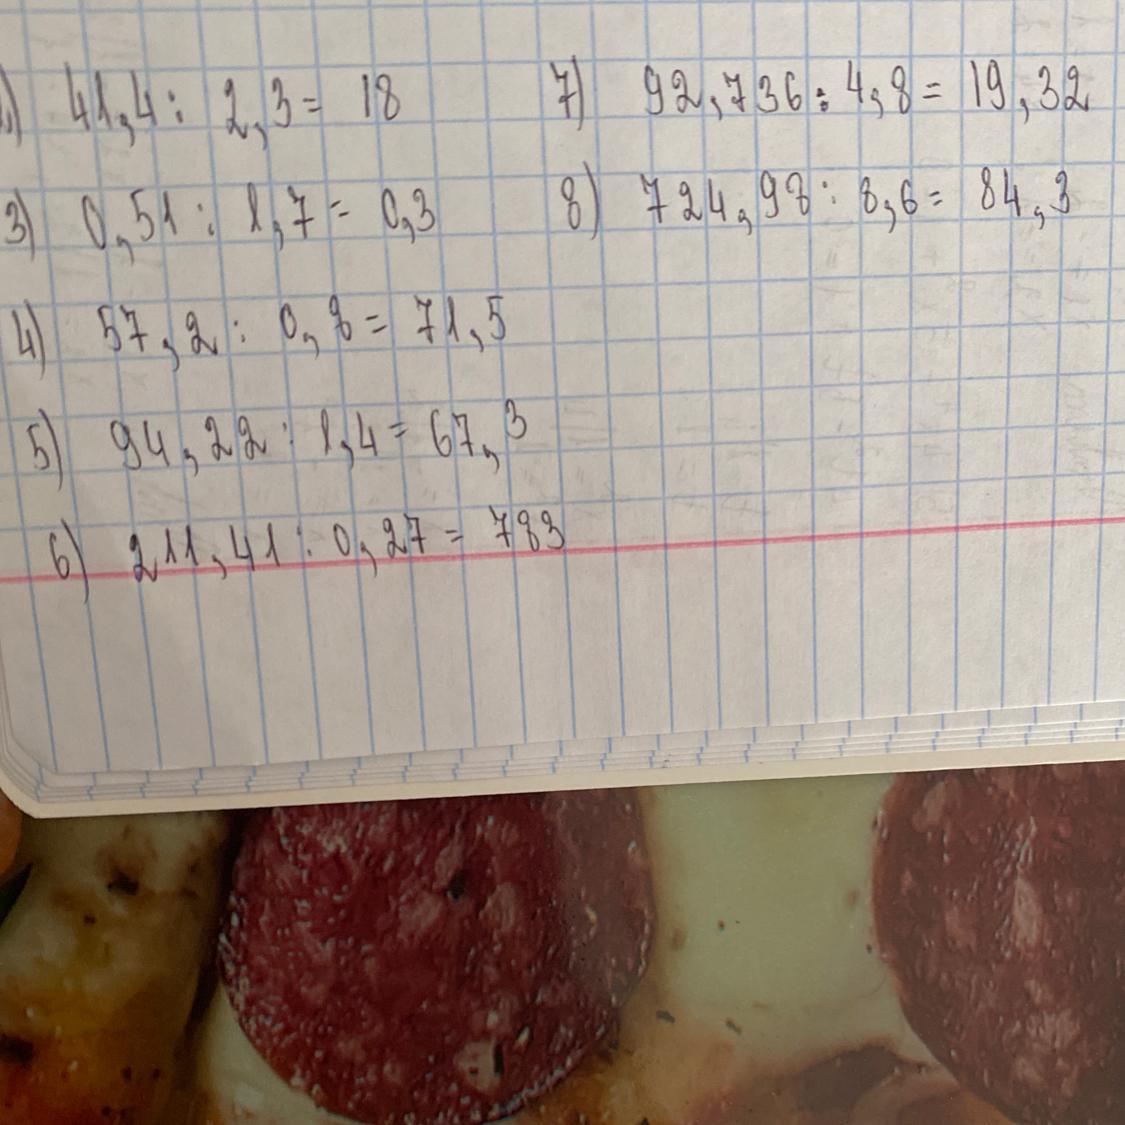 1) 41,4 : 2,3 = 18
3) 0,51 : 1,7 = 0,3
4) 57,2 : 0,8 = 71,5
5) 94,22 : 1,4 = 67,3
6) 211,41 : 0,27 = 783
7) 92,736 : 4,8 = 19,32
8) 724,98 : 8,6 = 84,3